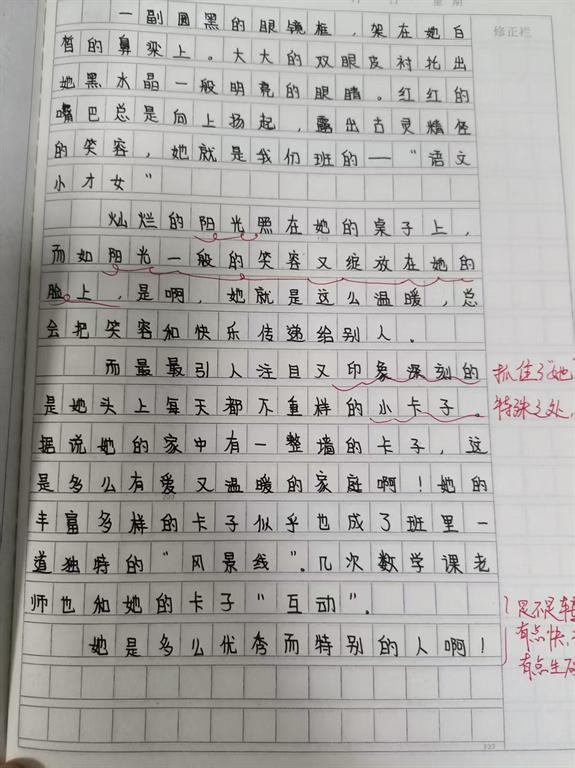 星期
修正栏
一副圆黑的眼镜框，架在她白
皙的鼻梁上。大大的双眼皮衬托出
她黑水晶一般明亮的眼睛。红红的
嘴巴总是向上扬起，露出古灵精怪
的笑容，她就是我们班的一“语文
小才女”
灿烂的阳光照在她的桌子上，
而如阳光一般的笑容又绽放在她的
脸上，是啊，她就是这么温暖，总
会把笑容和快乐传递给别人。
而最最引人注目又印象深刻的
抓住了她
是她头上每天都不重样的小卡子。
特殊之处，
据说她的家中有一整墙的卡子，这
是多么有爱又温暖的家庭啊！她的
丰富多样的卡子似乎也成了班里一
道独特的“风景线”。几次数学课老
师也和她的卡子“互动”。
是不是转
有点快，
她是多么优秀而特别的人啊！
有点生